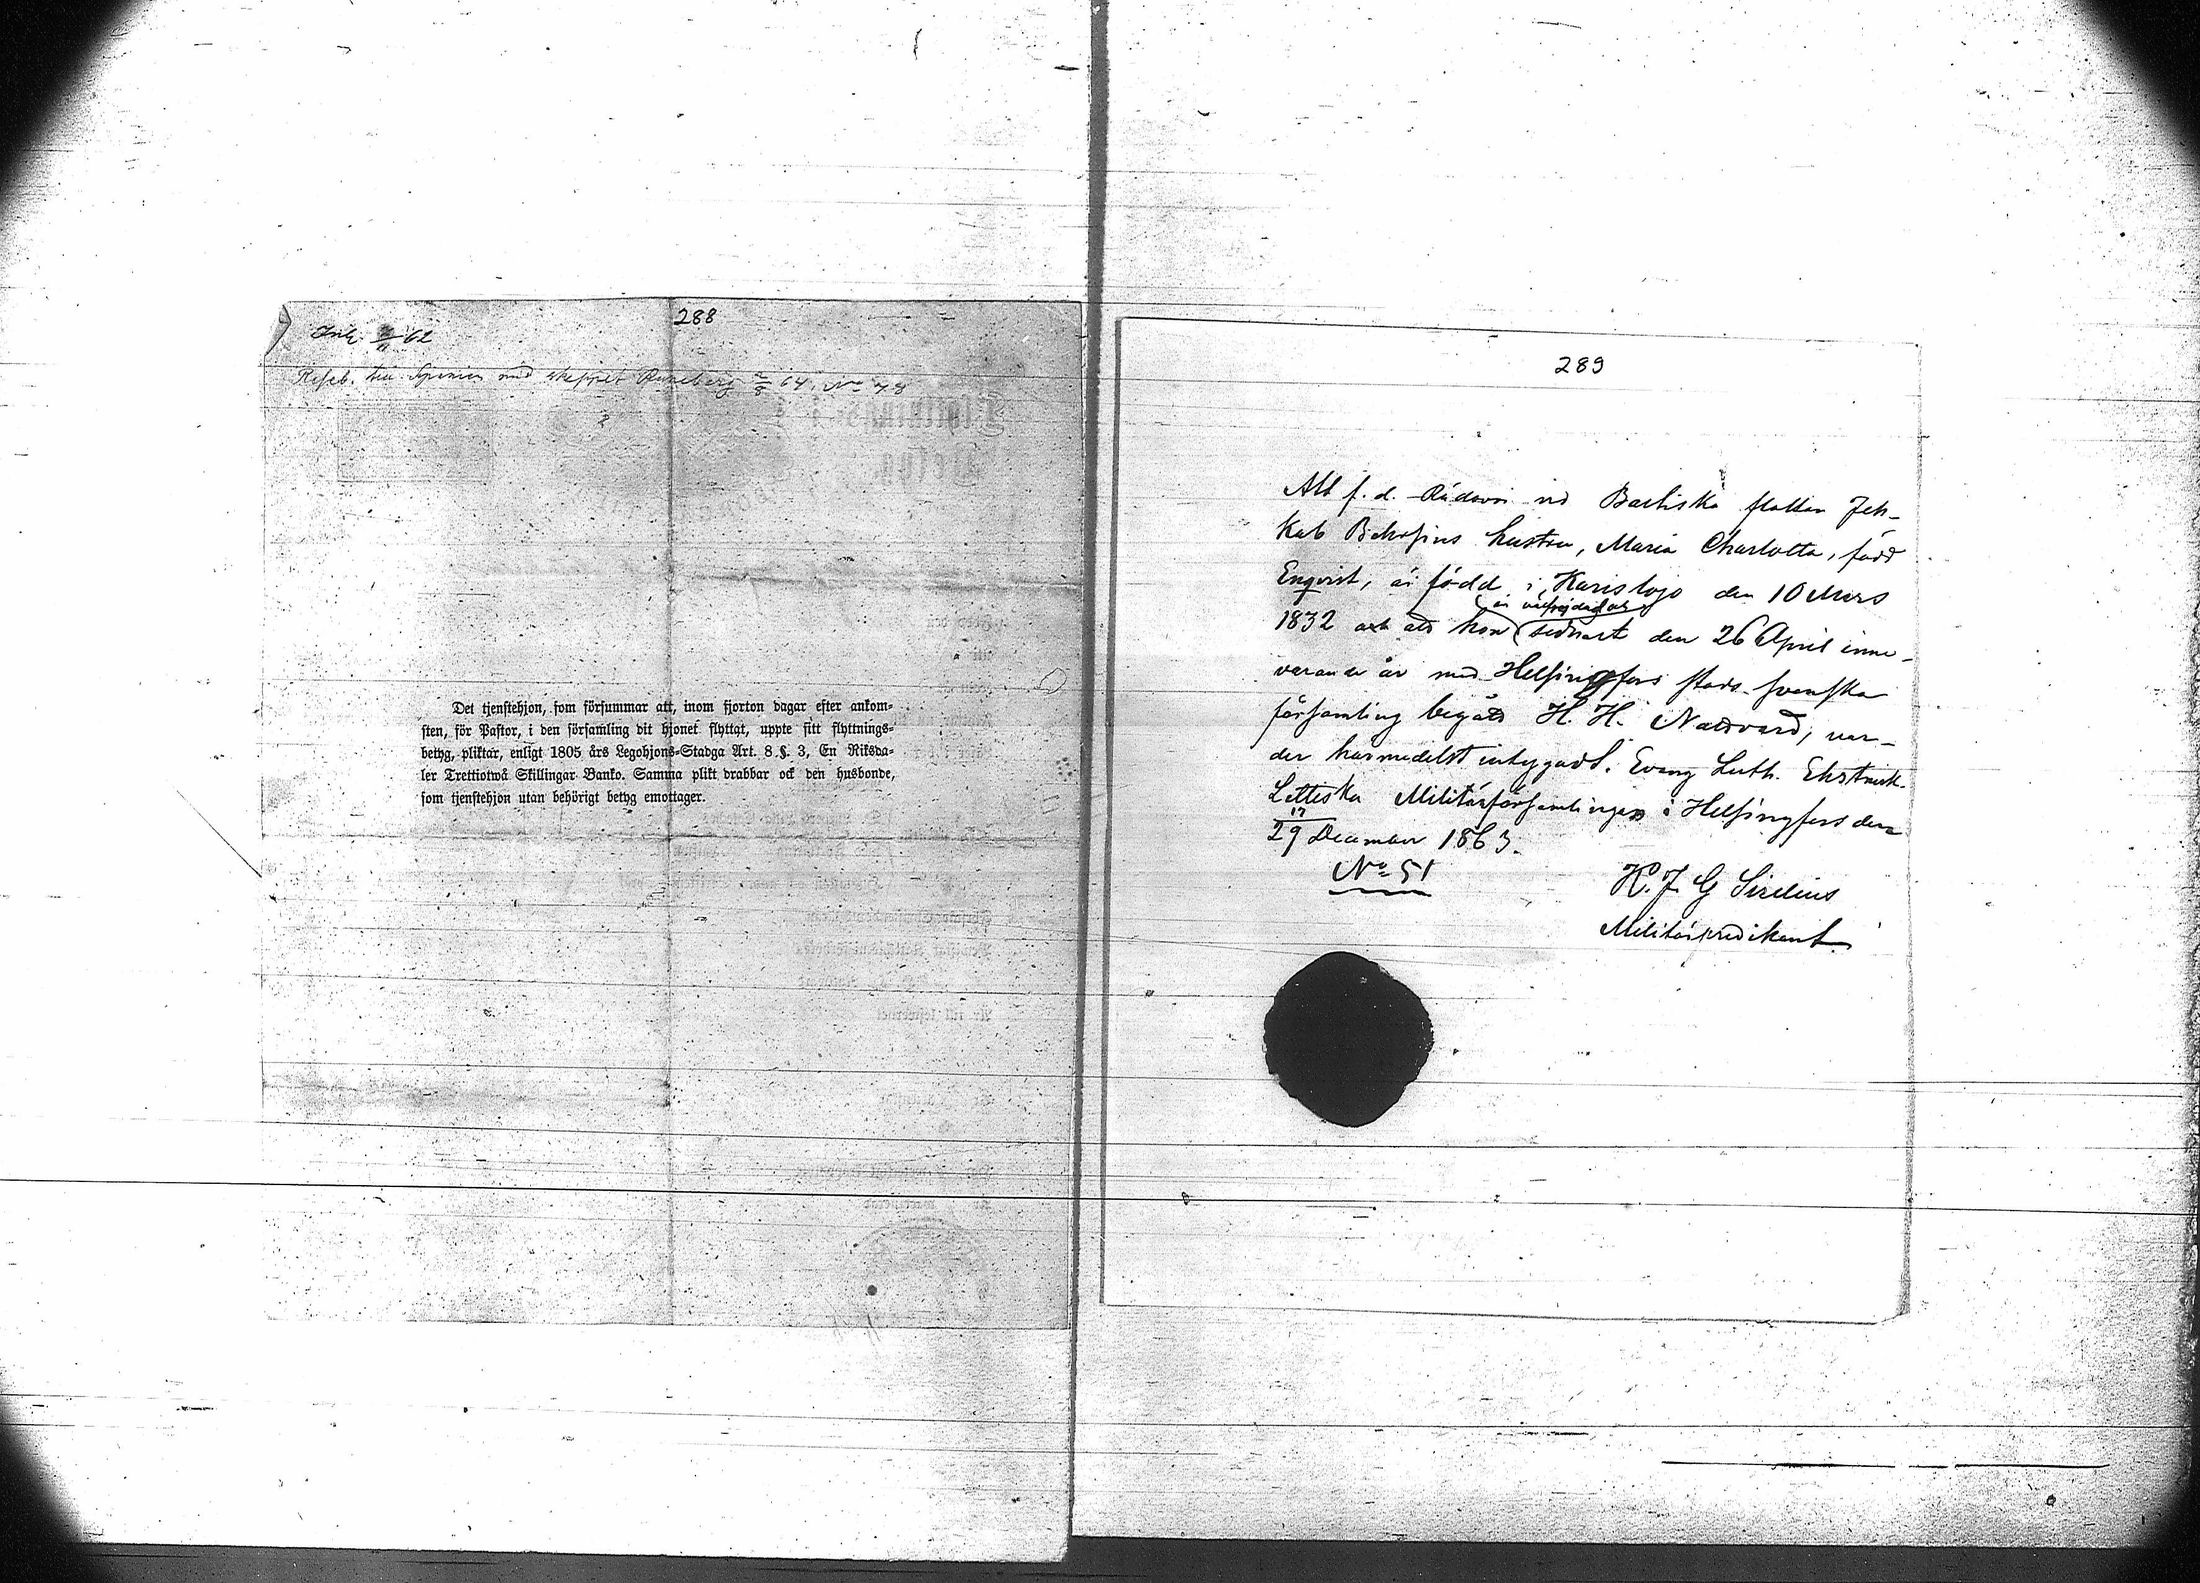 288
Ink. 62
Reseb. till Spanien med skeppet Runeberg 2/8 64. No 48
Det tjenstehjon, som försummar att, inom fjorton dagar efter ankom-
sten, för Pastor, i den församling dit hjonet flyttat, uppte sitt flyttnings-
betyg, pliktar, enligt 1805 års Legohjons-Stadga Art. 8 §. 3, En Riksda-
ler Trettiotwå Skillingar Banko. Samma plikt drabbar ock den husbonde,
som tjenstehjon utan behörigt betyg emottager.
289
Att f. d. vid Baltiska flottan
hustru, Maria Charlotta, född
Enqvist, är född i Karislojo den 10 Mars
är välfrejdad
1832 och att hon sednast den 26 April inne-
varande år med Helsingfors stads svenska
församling begått H. H. Nattvard, var-
der härmedelst intygadt. Evang Luth. Ehstnisk-
Lettiska Militärförsamlingen i Helsingfors den
17
29 December 1863.
No 51
K. J. G Sirelius
Militärpredikant